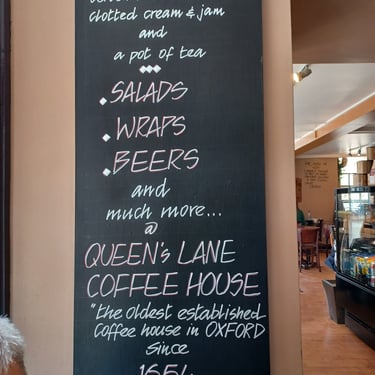 clotted cream & jam
and
a pot of tea
SALADS
WRAPS
BEERS
and
much more...
@
QUEEN's LANE
COFFEE HOUSE
"the oldest established
Coffee house in OXFORD
Since
1654